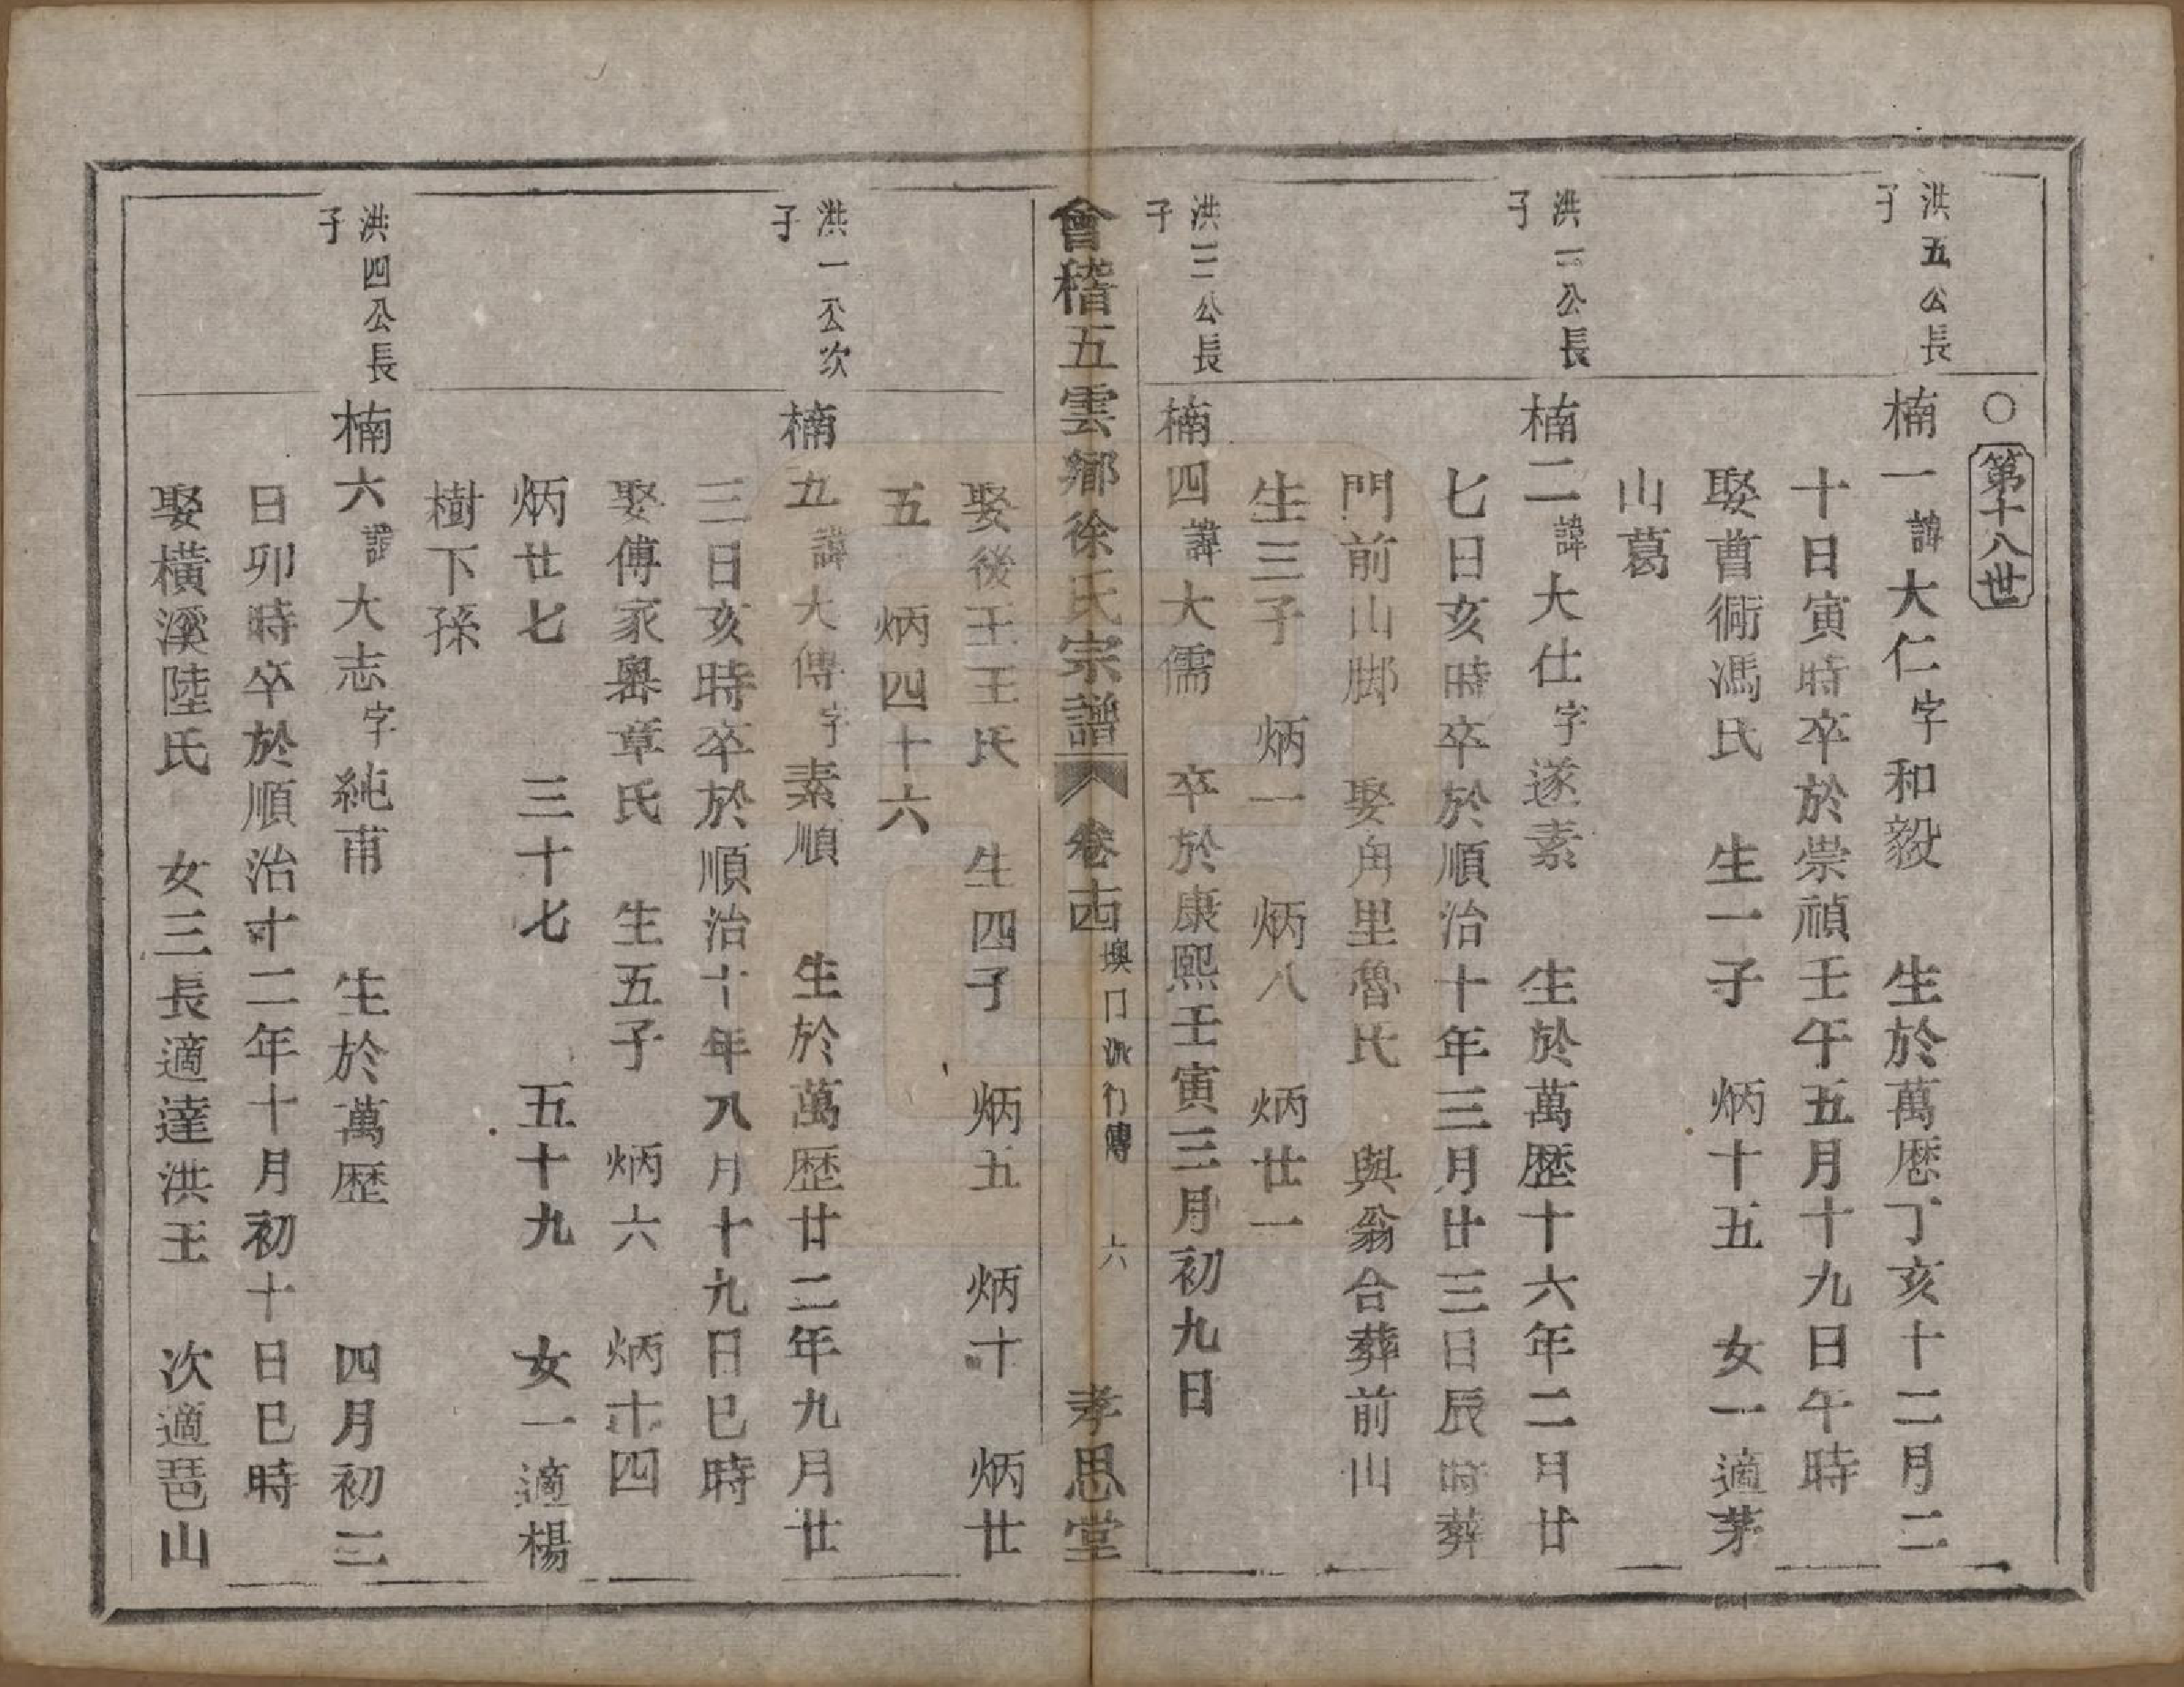 ○第十八世
洪五公長子
楠一諱大仁字和毅 生於萬厯丁亥十二月二
十日寅時卒於崇禎壬午五月十九日午時
娶曹衕馮氏 生一子 炳十五 女一適茅
山葛
洪二公長子
楠二諱大仕字遂素 生於萬歷十六年二月廿
七日亥時卒於順治十年三月廿三日辰時葬
門前山脚 娶角里魯氏 與翁合葬前山
生三子 炳一 炳八 炳廿一
洪三公長子
楠四諱大儒 卒於康熙壬寅三月初九日
會稽五雲鄉徐氏宗譜 卷十四 墺口派行傳 六 孝思堂
娶後王王氏 生四子 炳五 炳十 炳廿
五 炳四十六
洪一公次子
楠五諱大傳字素順 生於萬歷廿二年九月廿
三日亥時卒於順治十年八月十九日巳時
娶傅家墺章氏 生五子 炳六 炳十四
炳廿七 三十七 五十九 女一適楊
樹下孫
洪四公長子
楠六諱大志字純甫 生於萬歷 四月初三
日卯時卒於順治十二年十月初十日巳時
娶橫溪陸氏 女三長適達洪王 次適琶山